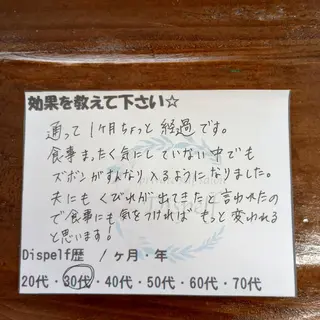 効果を教えて下さい☆
通って1ヶ月ちょっと経過です。
食事まったく気にしていない中でも
ズボンがすんなり入るようになりました。
夫にもくびれが出てきたと言われたの
で食事にも気をつければもっと変われる
と思います!
Dispelf歴 1ヶ月・年
20代・30代・40代・50代・60代・70代